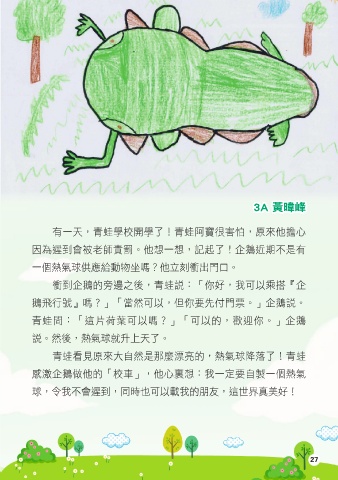 3A 黃暐峰
有一天，青蛙學校開學了！青蛙阿寶很害怕，原來他擔心
因為遲到會被老師責罰。他想一想，記起了！企鵝近期不是有
一個熱氣球供應給動物坐嗎？他立刻衝出門口。
衝到企鵝的旁邊之後，青蛙說：「你好，我可以乘搭『企
鵝飛行號』嗎？」「當然可以，但你要先付門票。」企鵝說。
青蛙問：「這片荷葉可以嗎？」「可以的，歡迎你。」企鵝
說。然後，熱氣球就升上天了。
青蛙看見原來大自然是那麼漂亮的，熱氣球降落了！青蛙
感激企鵝做他的「校車」，他心裏想：我一定要自製一個熱氣
球，令我不會遲到，同時也可以載我的朋友，這世界真美好！
27